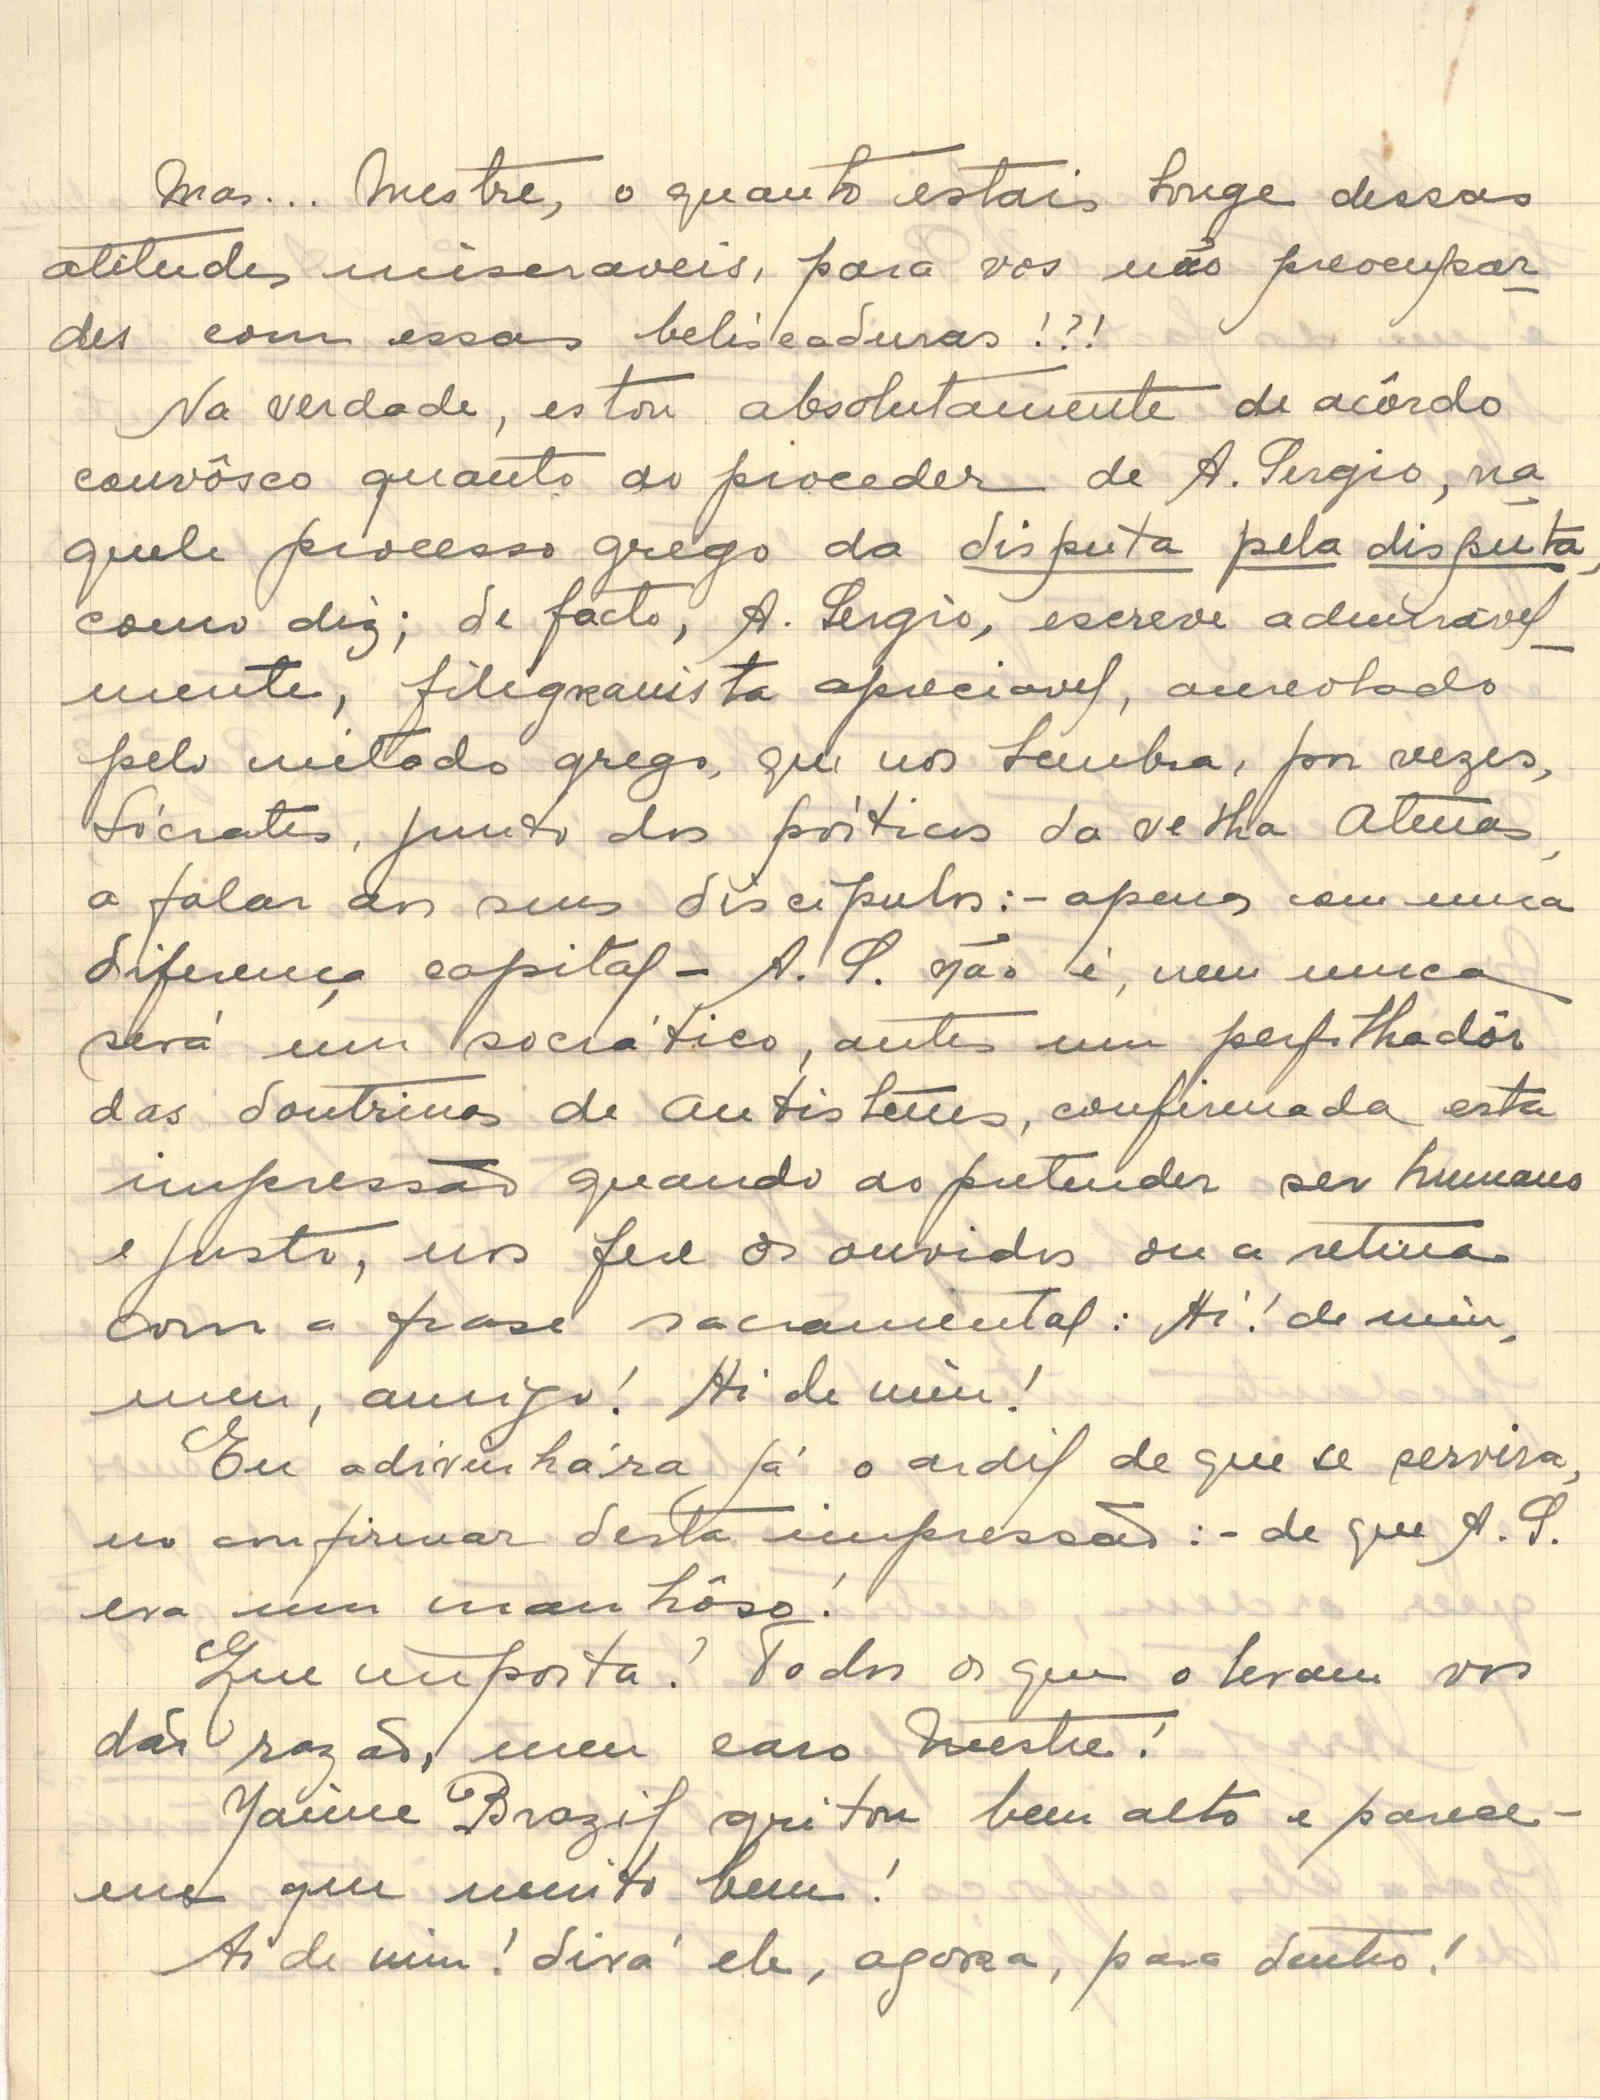 Mas... Mestre, o quanto estais longe dessas
atitudes miseraveis, para vos não preocupar-
des com essas beliscaduras!?!
Na verdade, estou absolutamente de acôrdo
convôsco quanto ao proceder de A. Sergio, na-
quele processo grego da disputa pela disputa,
como diz; de facto, A. Sergio, escreve admiravel-
mente, filigranista apreciavel, aureolado
pelo metodo grego, que nos lembra, por vezes,
Sócrates, junto dos pórticos da velha Atenas,
a falar aos seus discipulos:- apenas com uma
diferença capital - A. S. não é, nem nunca
será um socrático, antes um perfilhadôr
das doutrinas de Antistenes, confirmada esta
impressão quando ao pretender ser humano
e justo, nos fere os ouvidos ou a retina
com a frase sacramental: Ai! de mim,
meu, amigo! Ai de mim!
Eu adivinhára já o ardil de que se servira,
no confirmar desta impressão:- de que A. S.
era um manhôso!
Que importa! Todos os que o leram vos
dão razão, meu caro Mestre!
Jaime Brazil gritou bem alto e parece-
me que muito bem!
Ai de mim! dirá ele, agora, para dentro!